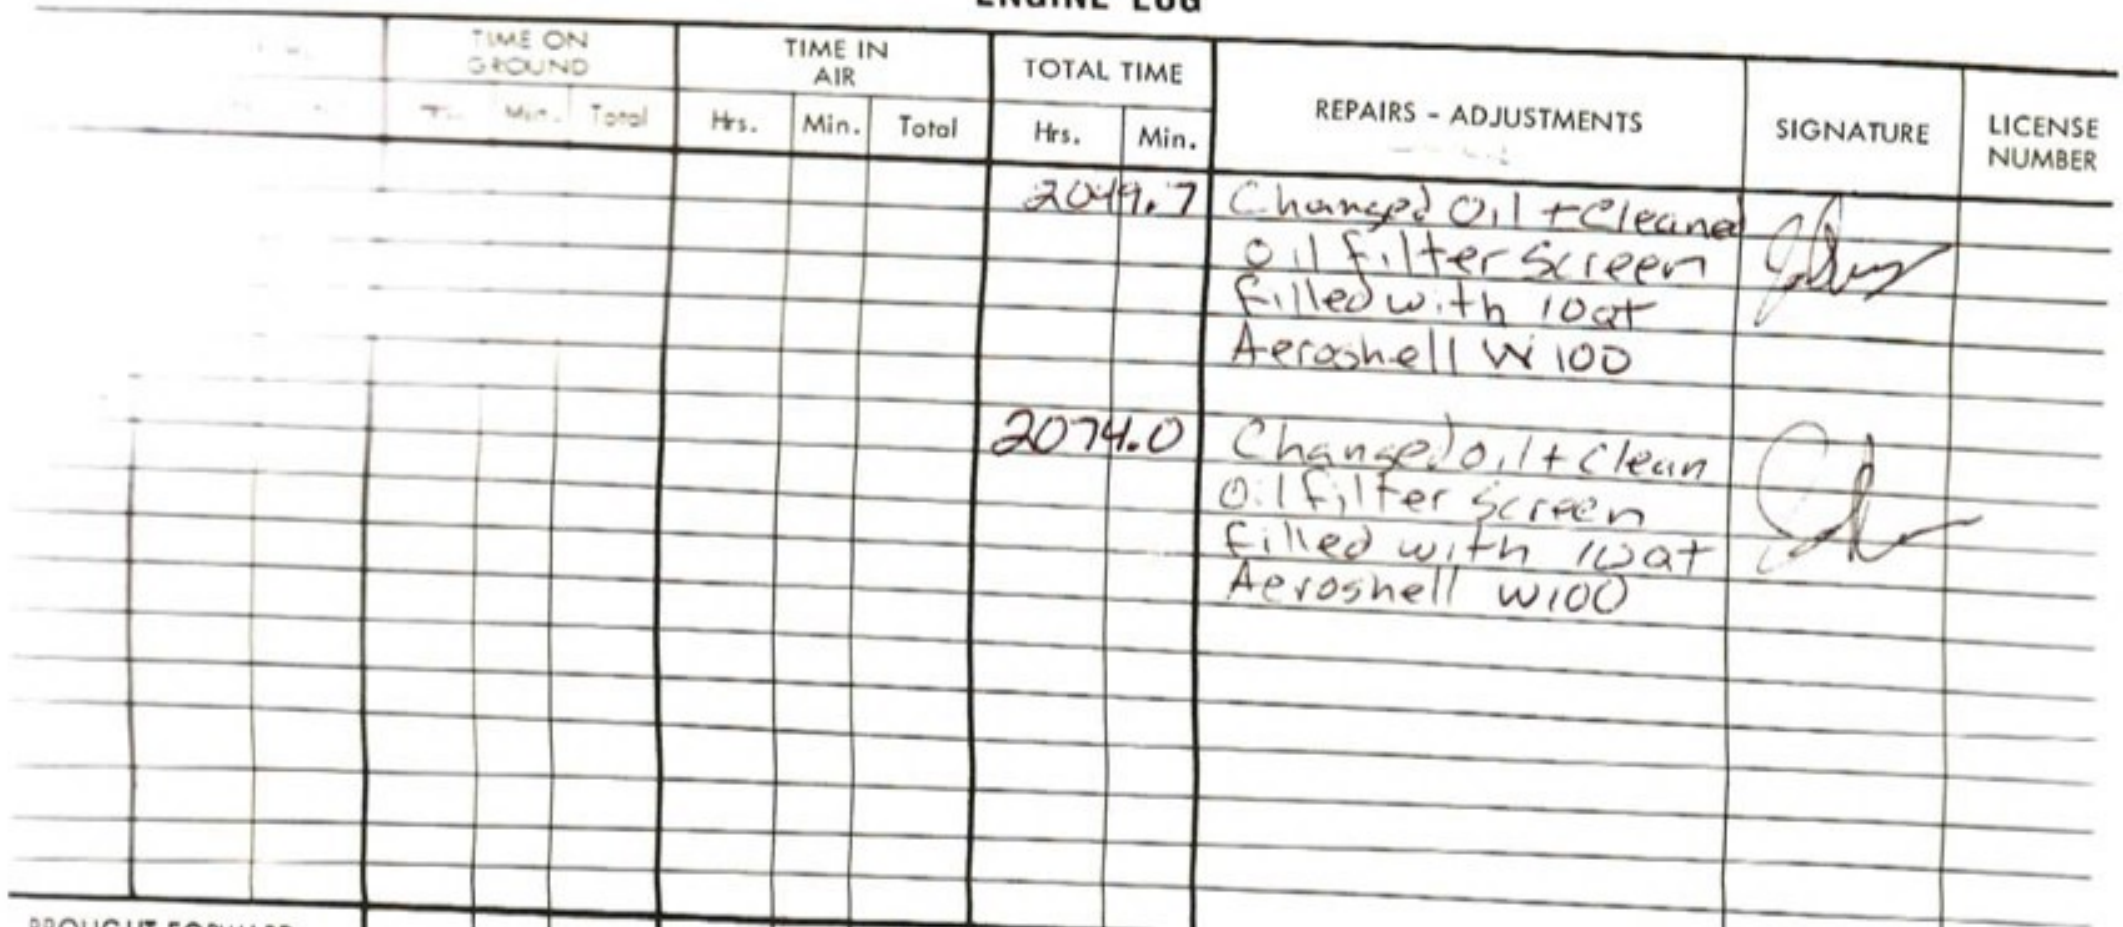 ENGINE LOG
TIME ON
GROUND
TIME IN
AIR
TOTAL TIME
REPAIRS - ADJUSTMENTS
SIGNATURE
LICENSE
NUMBER
Min.
Total
Hrs.
Min.
Total
Hrs.
Min.
2049.7
Changed Oil + Cleaned
Oil filter Screen
filled with 10qt
Aeroshell W100
2074.0
Changed oil + Clean
Oil filter screen
filled with 10qt
Aeroshell W100
BROUGHT FORWARD